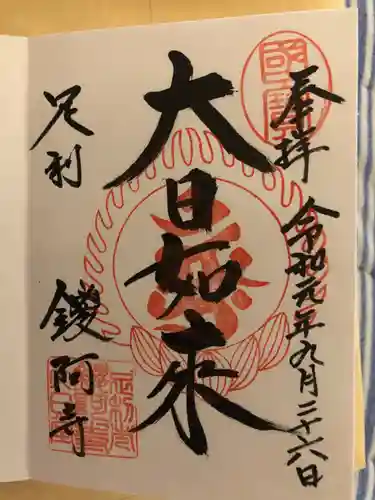 奉拝
令和元年九月二十六日
大日如来
足利
鑁阿寺